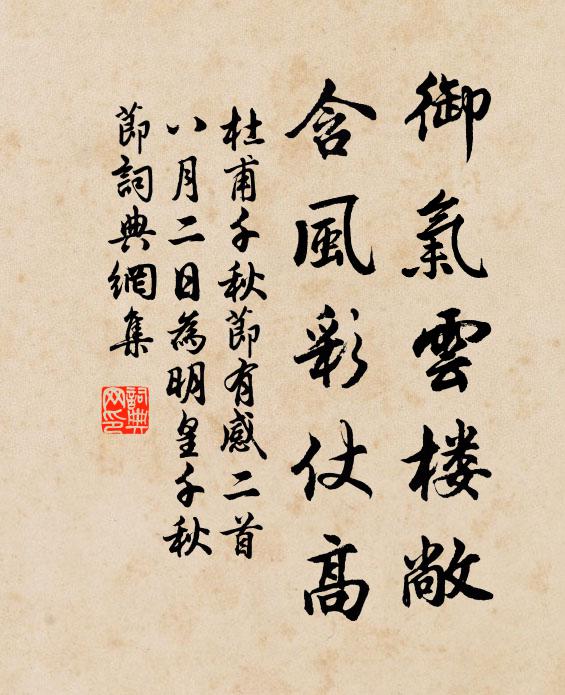 御氣雲楼敞
含風彩仗高
杜甫千秋節有感二首
八月二日為明皇千秋
節詞典網集
詞典网印